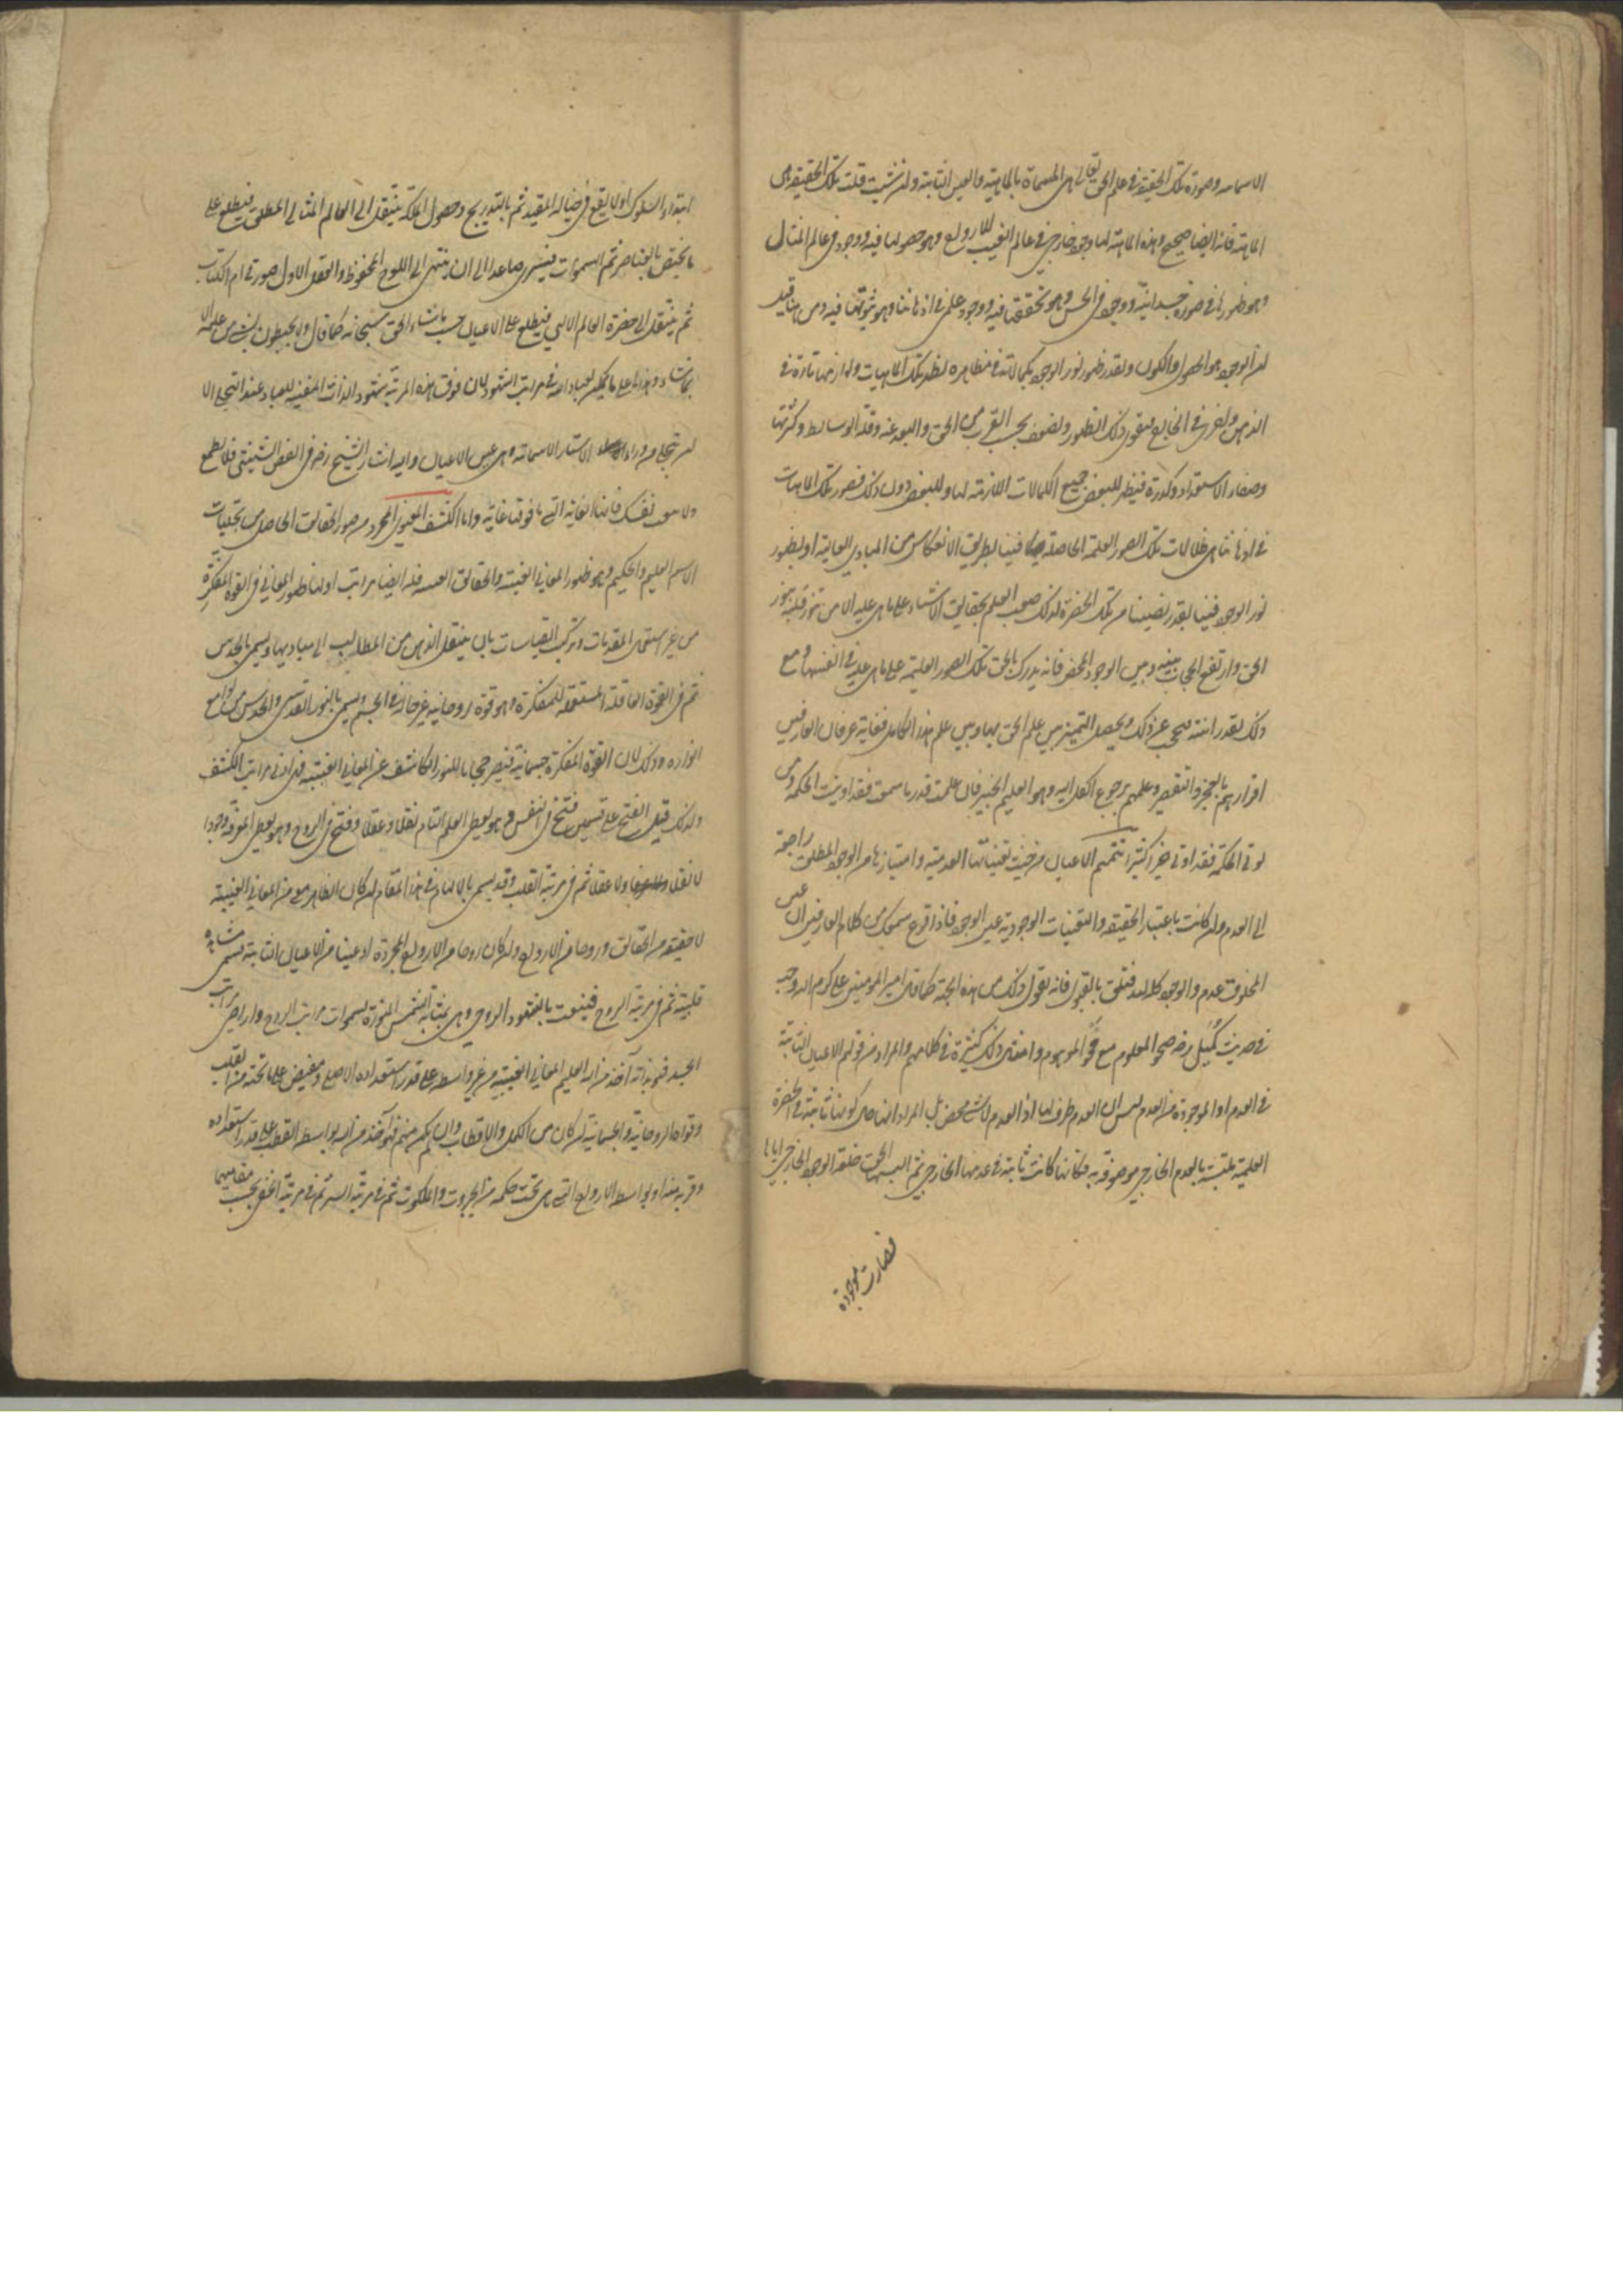 الاسمائيه وصورة تلك الحقيقة في علم الحق تعالى هي المسماة بالماهية والعين الثابتة وان شئت قلت تلك الحقيقة هى
الماهية فانه ايضا صحيح وهذه الماهية لها وجود خارجي في عالم الغيب للارواح وهو حصولها فيه ووجود في عالم المثال
وهو ظهورها في صورة جسدانية ووجود في الحس وهو تحققها فيه ووجود علمي في اذهاننا وهو ثبوتها فيه ومن هنا قيل
ان الوجود هو الحصول والكون وبقدر ظهور نور الوجود بكمالاته في مظاهره تظهر تلك الماهيات ولوازمها تارة في
الذهن واخرى في الخارج فيقوى ذلك الظهور ويضعف بحسب القرب من الحق والبعد عنه وقلة الوسايط وكثرتها
وصفاء الاستعداد وكدره فيظهر للبعض جميع الكمالات اللازمة لها وللبعض دون ذلك فصور تلك الماهيات
في اذهاننا هي ظلالات تلك الصور العلمية الحاصلة فينا بطريق الانعكاس من المبادي العالية او بظهور
نور الوجود فينا بقدر نصيبنا من تلك الحضرة لذلك صعب العلم بحقايق الاشياء على ما هي عليه الا من تنور قلبه بنور
الحق وارتفع الحجاب بينه وبين الوجود المحض فانه يدرك بالحق تلك الصور العلمية على ما هي عليه في انفسها ومع
ذلك بقدر انيته ينحجب عن ذلك ويحصل التميز بين علم الحق بها وبين علم هذا الكامل فغاية عرفان العارفين
اقرارهم بالعجز والتقصير وعلمهم برجوع الكل اليه وهو العليم الخبير فان علمت قدر ما سمعت فقد اوتيت الحكمة ومن
يوتى الحكمة فقد اوتي خيرا كثيرا تتميم الاعيان من حيث تعيناتها العدمية وامتيازها من الوجود المطلق راجعة
الى العدم وان كانت باعتبار الحقيقة والتعينات الوجودية عين الوجود فاذا قرع سمعك من كلام العارفين ان عين
المخلوق عدم والوجود كله لله فتلق بالقبول فانه يقول ذلك من هذه الجهة كما قال امير المومنين علي كرم الله وجهه
في حديث كميل رضه صحو المعلوم مع محو الموهوم وامثال ذلك كثيرة في كلامهم والمراد من قولهم الاعيان الثابتة
في العدم او الموجودة من العدم ليس ان العدم ظرف لها اذ العدم لا شئ محض بل المراد انها حال كونها ثابتة في الحضرة
العلمية ملتبسة بالعدم الخارجي موصوفة به فكانها كانت ثابتة في عدمها الخارجي ثم البسها الحق خلعة الوجود الخارجي اياها
فصارت موجودة
ابتداء السلوك اولا يقع في خياله المقيد ثم بالتدريج وحصول الملكة ينتقل الى العالم المثالي المطلق فيطلع على
ما يختص بالعناصر ثم السموات فيسري صاعدا الى ان ينتهي الى اللوح المحفوظ والعقل الاول صورتي ام الكتاب
ثم ينتقل الى حضرة العالم الالهي فيطلع على الاعيان حسب ما شاء الحق سبحانه كما قال ولا يحيطون بشئ من علمه الا
بما شاء وهذا اعلى ما يمكن لعباد الله في مراتب الشهود لان فوق هذه المرتبة شهود الذات المفنيه للعباد عند التجلي الا
ان تتجلى من وراء الاستار الاسمائيه وهي عين الاعيان واليه اشار الشيخ رضه في الفص الشيثي فلا تطمع
ولا تتعب نفسك فانها الغاية التي ما فوقها غاية واما الكشف المعنوي المجرد من صور الحقايق الحاصل من تجليات
الاسم العليم والحكيم وهو ظهور المعاني الغيبيه والحقايق العينيه فله ايضا مراتب اولها ظهور المعاني في القوة المفكرة
من غير استعمال المقدمات وتركيب القياسات بان ينتقل الذهن من المطالب الى مباديها ويسمى بالحدس
ثم في القوة العاقلة المستعملة للمفكرة وهو قوة روحانية غير حالة في الجسم ويسمى بالنور القدسي والحدس من لوامع
انواره وذلك لان القوة المفكرة جسمانية فتصير حجابا للنور الكاشف عن المعاني الغيبيه فهي ادنى مراتب الكشف
ولذلك قيل الفتح على قسمين فتح في النفس وهو يعطى العلم التام نقلا وعقلا وفتح في الروح وهو يعطى المعرفة وجودا
لا نقلا ولا عقلا ثم في مرتبة القلب وقد يسمى بالالهام في هذا المقام ان كان الظاهر معنى من المعاني الغيبية
لا حقيقة من الحقايق وروحا من الارواح وان كان روحا من الارواح المجردة او عينا من الاعيان الثابتة يسمى مشاهدة
قلبية ثم في مرتبة الروح فينعت بالشهود الروحي وهي بمثابة الشمس المنورة لسموات مراتب الروح واراضي مراتب
الجسد فهو بذاته آخذ من الله العليم المعاني الغيبية من غير واسطة على قدر استعداده الاصلي ومفيض على ما تحته من القلب
وقواه الروحانية والجسمانية ان كان من الكمل والاقطاب وان لم يكن منهم فهو آخذ من الله بواسطة القطب على قدر استعداده
وقربه منه او بواسطة الارواح التي هي تحت حكمه من الجبروت والملكوت ثم في مرتبة السر ثم في مرتبة الخفي بحسب مقاميهما